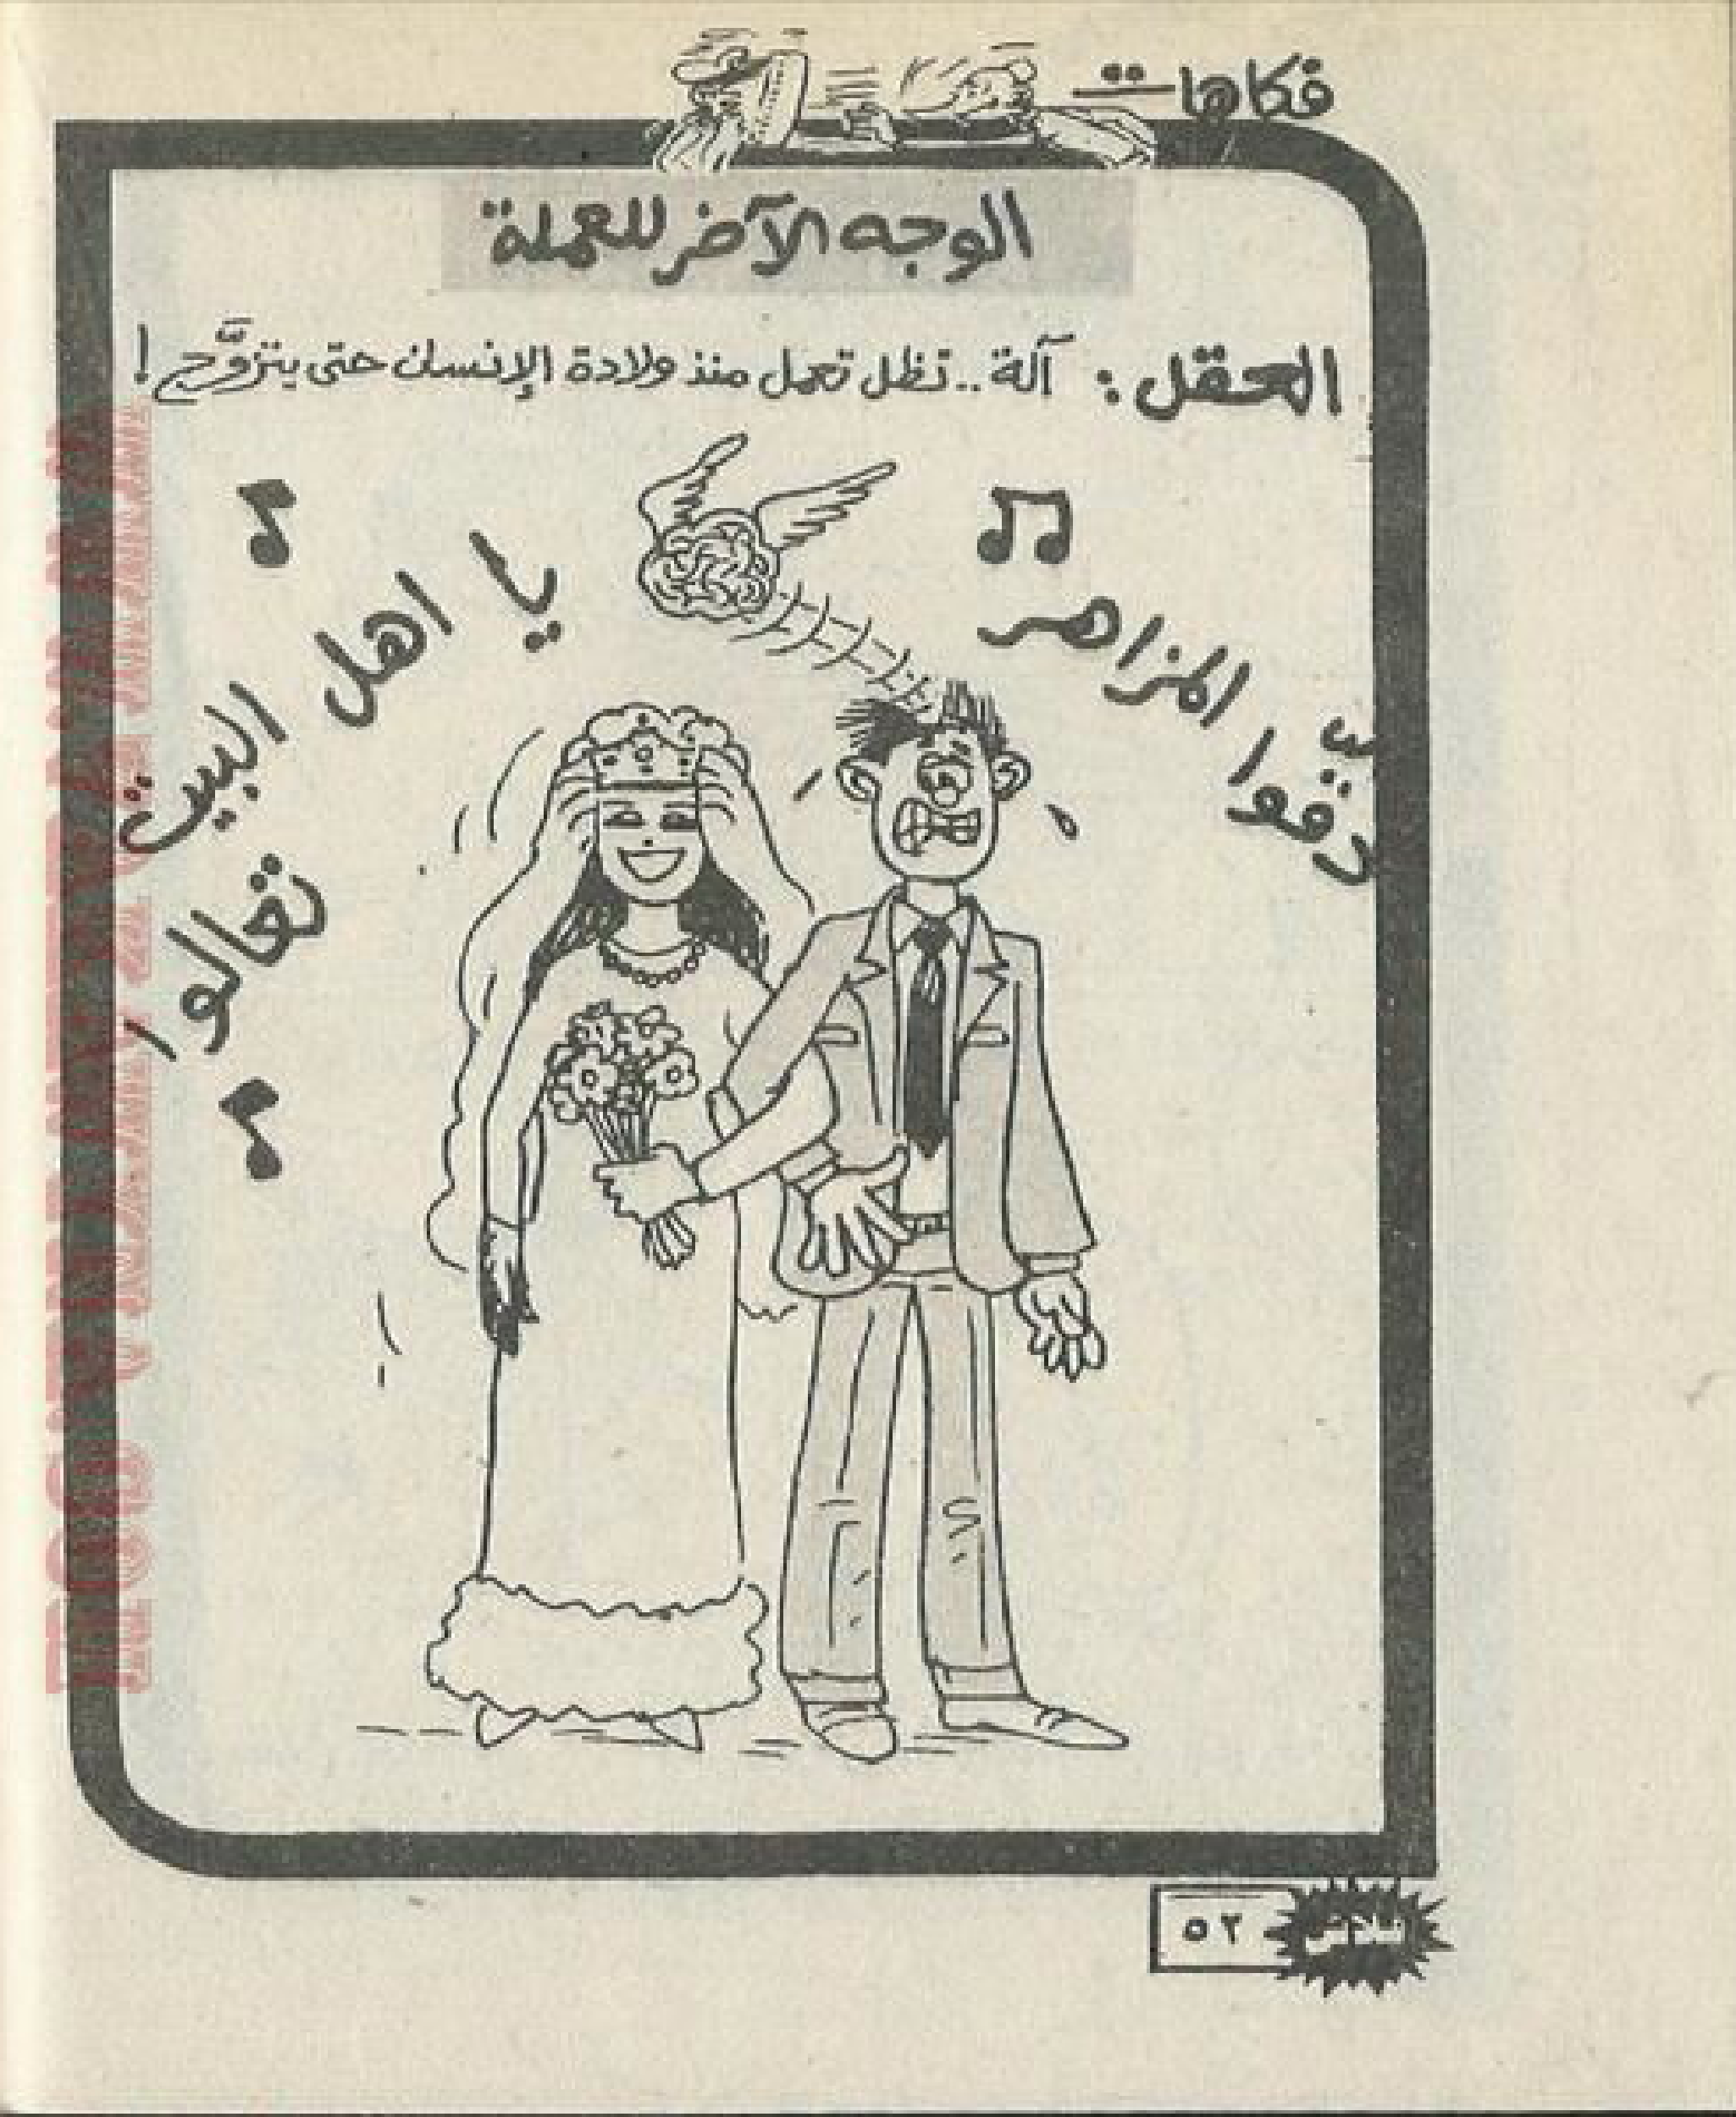 فكاهات
الوجه الآخر للعملة
العقل: آلة.. تظل تعمل منذ ولادة الإنسان حتى يتزوَّج!
دقّوا المزاهر
يا اهل البيت
تعالوا
فلاش ٥٢